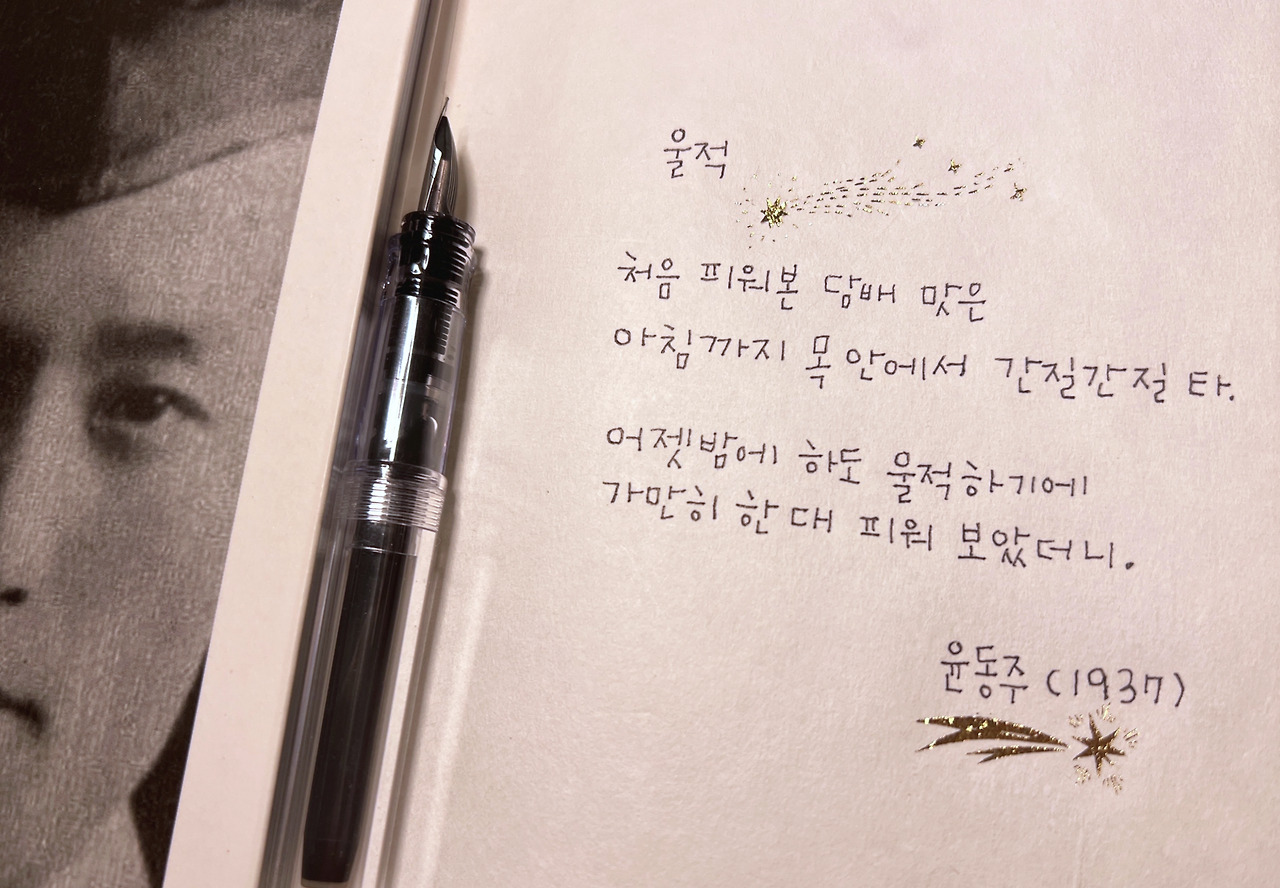 울적
처음 피워본 담배 맛은
아침까지 목 안에서 간질간질 타.
어젯밤에 하도 울적하기에
가만히 한 대 피워 보았더니.
윤동주 (1937)